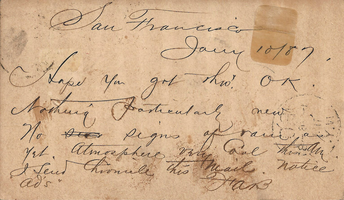 San Francisco
Jany 10/87.
Hope you got thro'. OK.
Nothing particularly new
No signs of rain, as
yet. Atmosphere very Cool
I Send Chronicle this Mail. notice
ads.